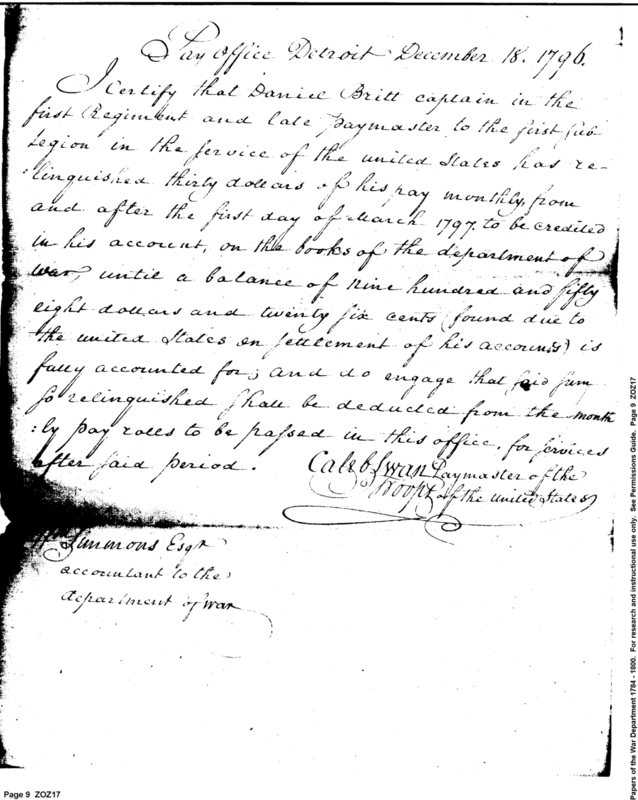 Pay Office Detroit December 18. 1796.
I Certify that Daniel Britt captain in the
first Regiment and late paymaster to the first sub
Legion in the service of the united States has re-
:linquished thirty dollars of his pay monthly, from
and after the first day of March 1797. to be credited
in his account, on the books of the department of
war, until a balance of nine hundred and fifty
eight dollars and twenty six cents (found due to
the united States on settlement of his accounts) is
fully accounted for; and do engage that said sum
so relinquished shall be deducted from the month
:ly pay rolls to be passed in this office, for services
after said period.
Caleb Swan Paymaster of the
Troops of the united States
Wm Simmons Esqr
accountant to the
department of war
Page 9 ZOZ17
Papers of the War Department 1784 - 1800. For research and instructional use only. See Permissions Guide. Page 9 ZOZ17